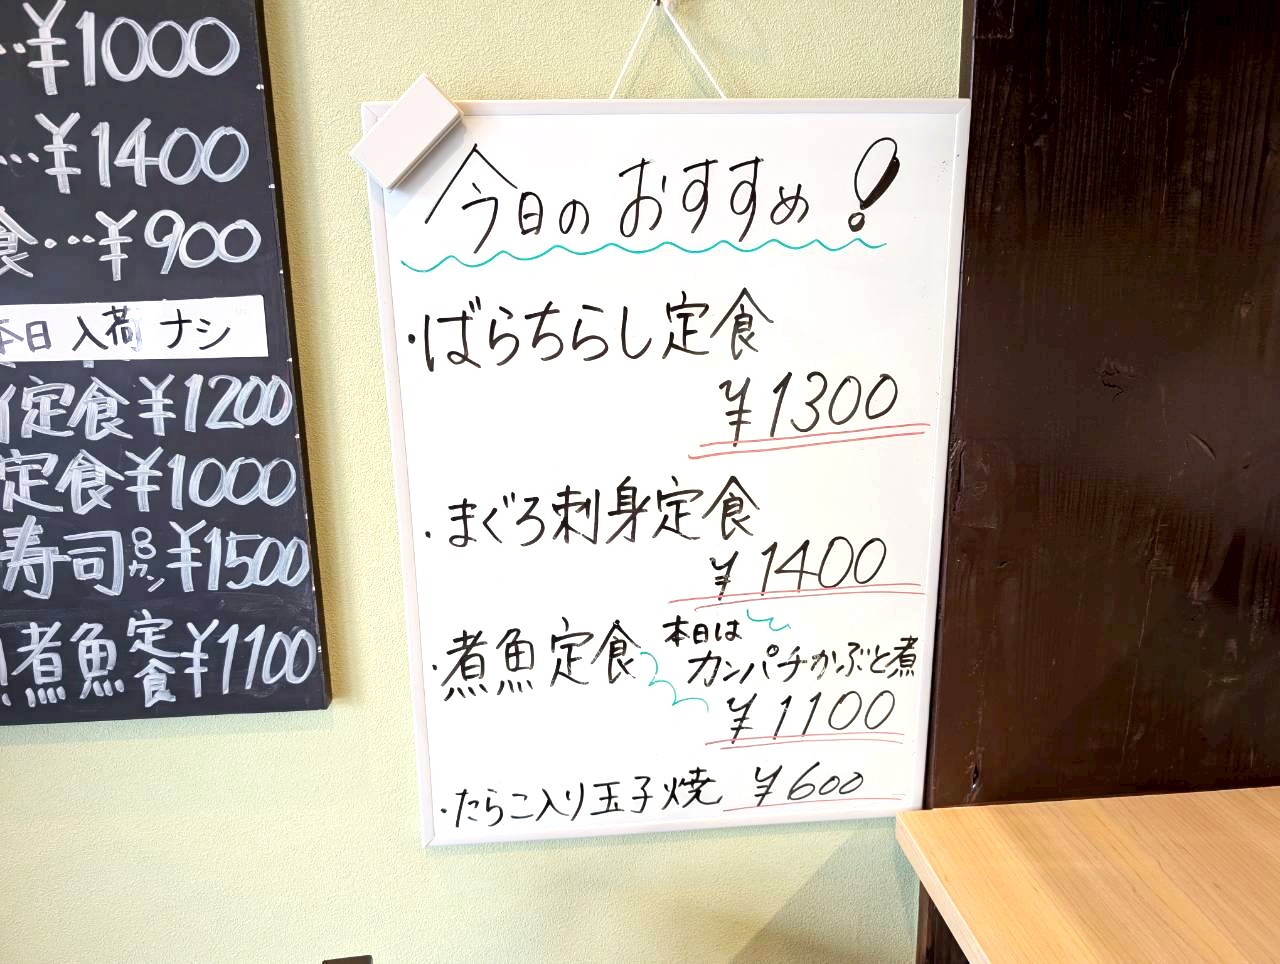 …¥1000
…¥1400
食…¥900
本日入荷ナシ
定食¥1200
定食¥1000
寿司8カン¥1500
煮魚定食¥1100
今日のおすすめ!
・ばらちらし定食
¥1300
・まぐろ刺身定食
¥1400
・煮魚定食
本日は
カンパチかぶと煮
¥1100
・たらこ入り玉子焼 ¥600